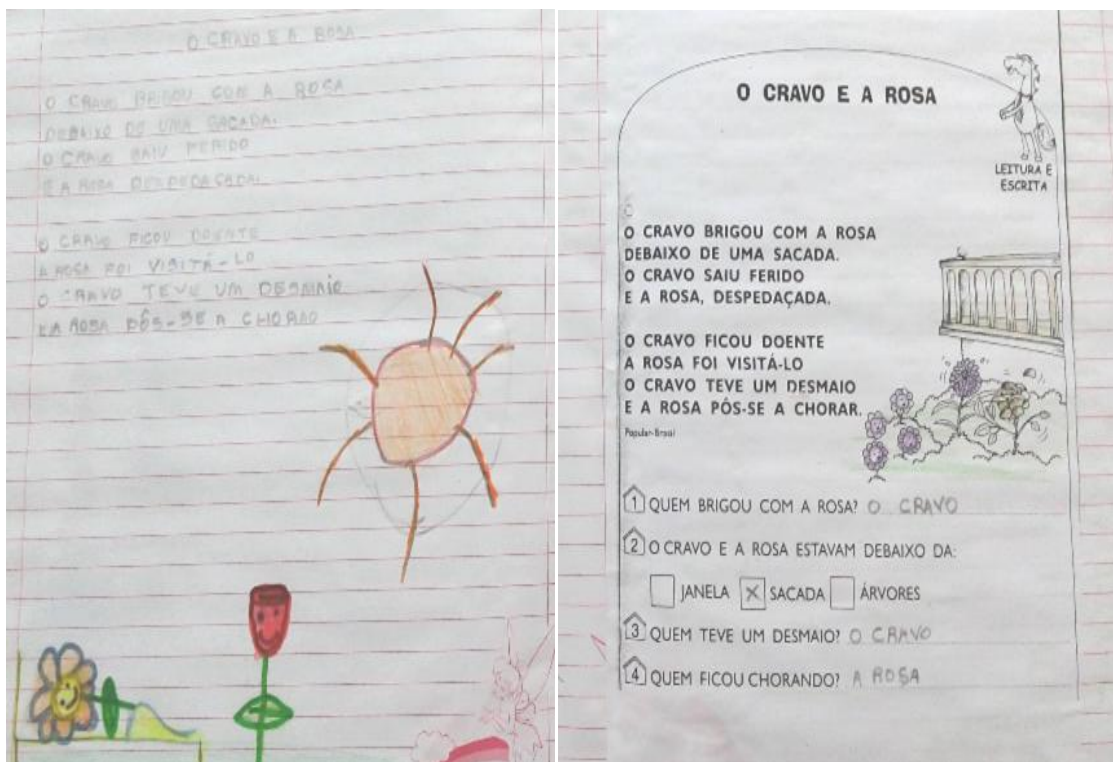 O CRAVO E A ROSA
O CRAVO BRIGOU COM A ROSA
DEBAIXO DE UMA SACADA.
O CRAVO SAIU FERIDO
E A ROSA DESPEDAÇADA.
O CRAVO FICOU DOENTE
A ROSA FOI VISITÁ-LO
O CRAVO TEVE UM DESMAIO
E A ROSA PÔS-SE A CHORAO
O CRAVO E A ROSA
LEITURA E
ESCRITA
O CRAVO BRIGOU COM A ROSA
DEBAIXO DE UMA SACADA.
O CRAVO SAIU FERIDO
E A ROSA, DESPEDAÇADA.
O CRAVO FICOU DOENTE
A ROSA FOI VISITÁ-LO
O CRAVO TEVE UM DESMAIO
E A ROSA PÔS-SE A CHORAR.
Popular-Brasil
1 QUEM BRIGOU COM A ROSA? O CRAVO
2 O CRAVO E A ROSA ESTAVAM DEBAIXO DA:
JANELA X SACADA ÁRVORES
3 QUEM TEVE UM DESMAIO? O CRAVO
4 QUEM FICOU CHORANDO? A ROSA